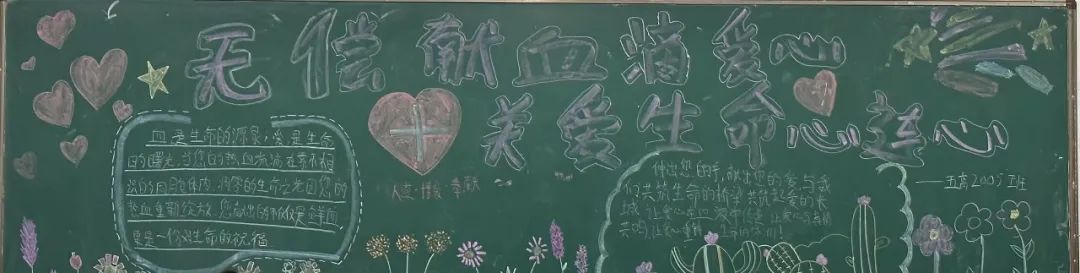 无偿献血滴爱心
关爱生命心连心
血是生命的源泉,爱是生命
的曙光,当您的热血流淌在素不相
识的同胞体内,消零的生命之花因您的
热血重新绽放,您献出的不仅仅是鲜血
更是一份对生命的祝福
奉献
伸出您的手,献出您的爱,与我
们共筑生命的桥梁,共筑起爱的长
城,让爱心在血液中传递,让爱心
去吧,让 生命
——五高2005班